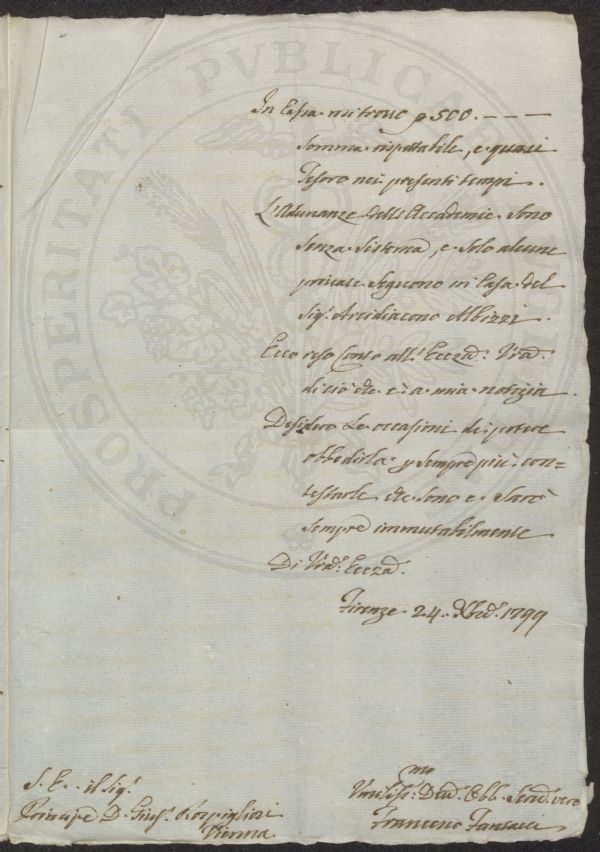 In Cassa mi trovo p 500. - - -
Somma rispettabile, e quasi
Tesoro nei presenti tempi.
L'Adunanze dell'Accademie sono
senza sistema, e solo alcune
private seguono in Casa del
Sig.r Arcidiacono Albizzi.
Ecco reso conto all' Eccza. Vra.
di ciò che è a mia notizia.
Desidero Le occasioni di potere
obbedirla y sempre più con=
testarle che sono e sarò
sempre immutabilmente
Di Vra. Eccza.
Firenze 24. Xbre. 1799
S. E. il Sig.
Principe D. Gius. Rospigliosi
Vienna.
mo
Umiliss. Dev. Obb. Serv. vero
Francesco
PROSPERITATI PUBLICAE